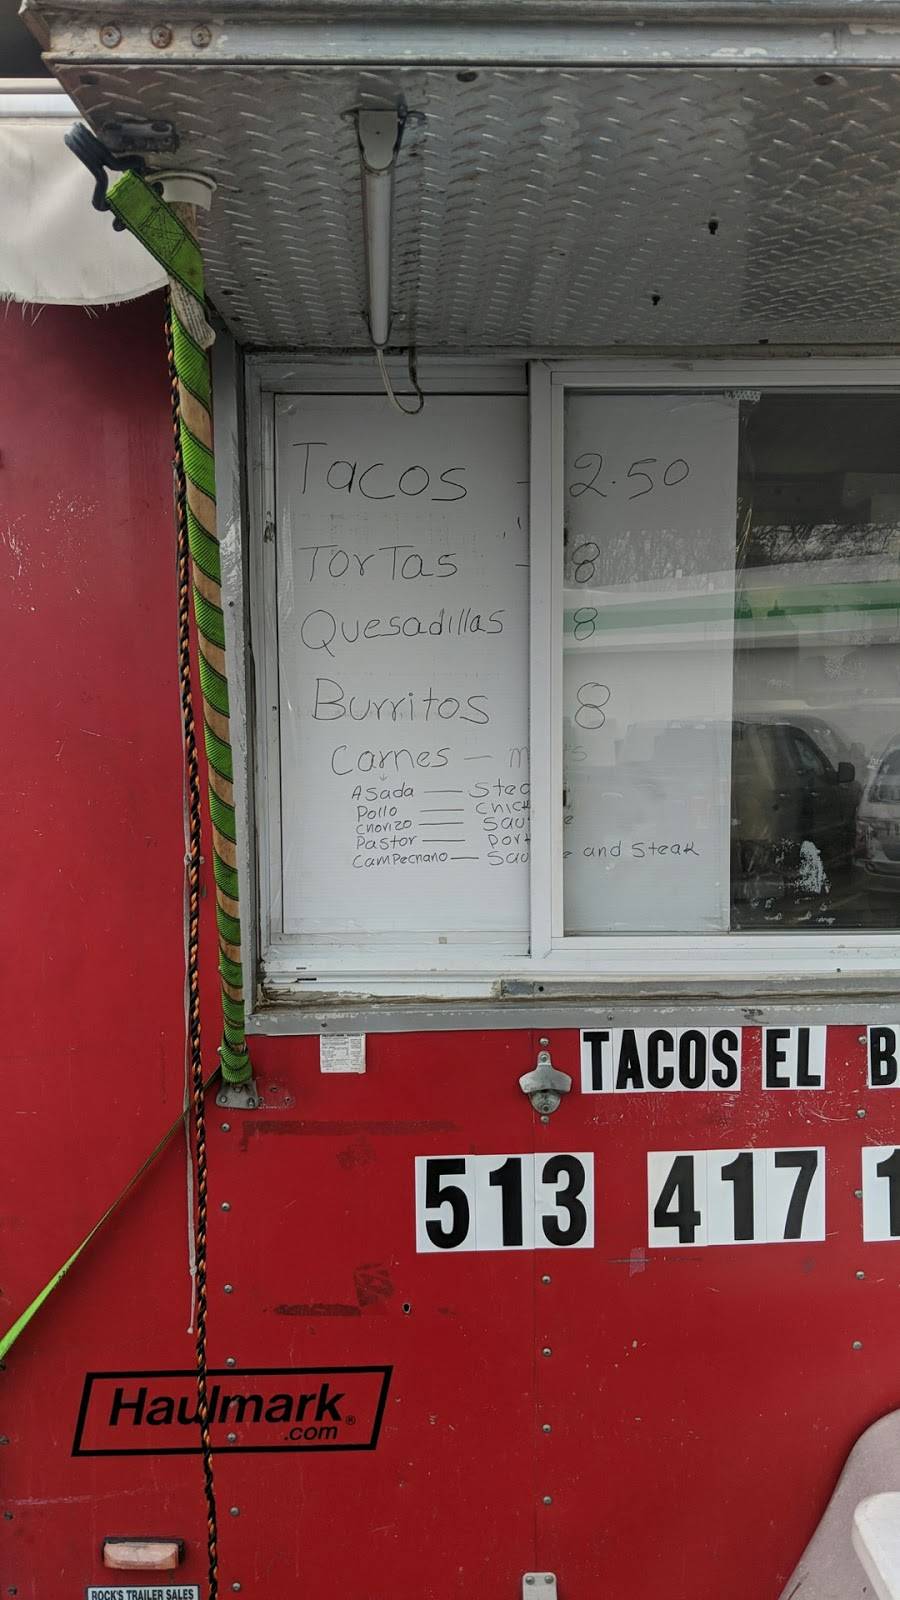 Tacos - 2.50
Tortas - 8
Quesadillas 8
Burritos 8
Carnes -
Asada — Stea
Pollo — Chic
Chorizo — Sau e
Pastor — Por
Campechano — Sau e and Steak
TACOS EL B
513 417 1
Haulmark®
.com
ROCK'S TRAILER SALES